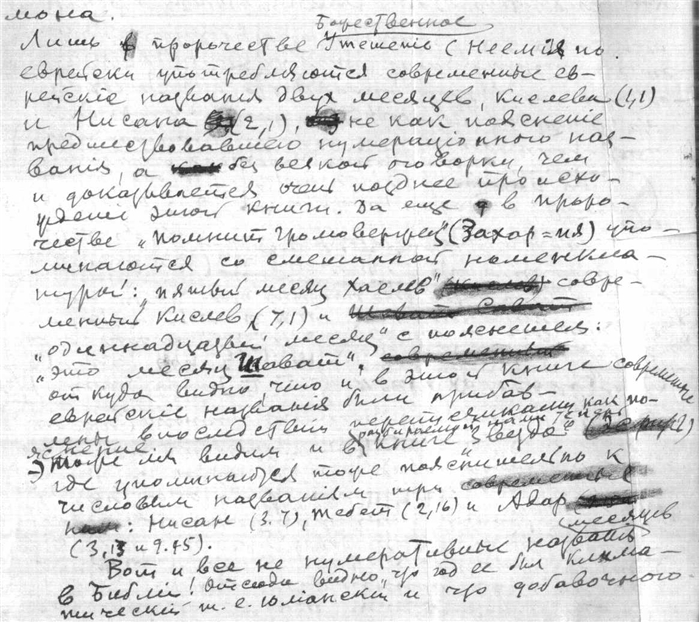 мона.
Божественное
Лишь в пророчестве Утешенiе (Неемiя по
еврейски употребляются современные ев-
рейскiе названiя двух месяцев, Кислева (1,1)
и Нисана (2,1), не как пояснение
предшествовавшего нумерацiонного наз-
ванiя, а без всякой оговорки, чем
и доказывается очень позднее происхо-
ждение этой книги. Да еще в проро-
честве „Помнит Громовержец" (Захар-ия) упо-
минаются со смешанной номенкла-
турой: „пятый месяц Хаслев" совре-
менный Кислев, (7,1) и
„одиннадцатый месяц" с пояснением:
„это месяц Шават",
откуда видно что и в этой книге современные
еврейскiе названiя были прибав-
лены впоследствии переписчиками как по-
яснение
Это же мы видим и в книге „Звезда"
где упоминаются тоже пояснительно к
числовым названiям три
: Нисан (3.7), Тебет (2,16) и Адар
(3,13 и 9.15).
месяцев
Вот и все не нумеративные названiя
в Библiи! Отсюда видно, что год ее был клима-
тическiй т. е. юлiанскiй и что добавочного